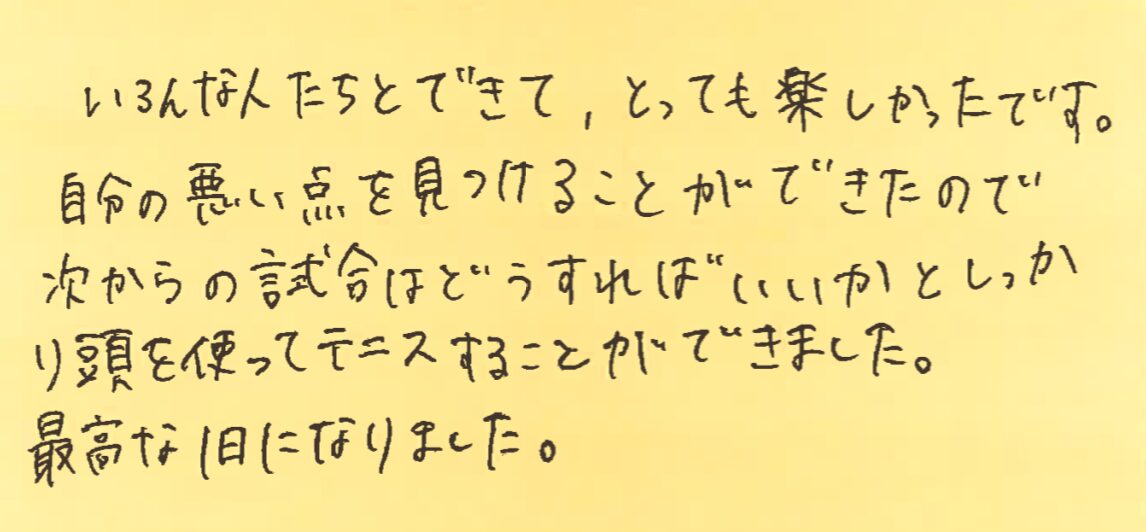 いろんな人たちとできて,とっても楽しかったです。
自分の悪い点を見つけることができたので
次からの試合はどうすればいいかとしっか
り頭を使ってテニスすることができました。
最高な1日になりました。